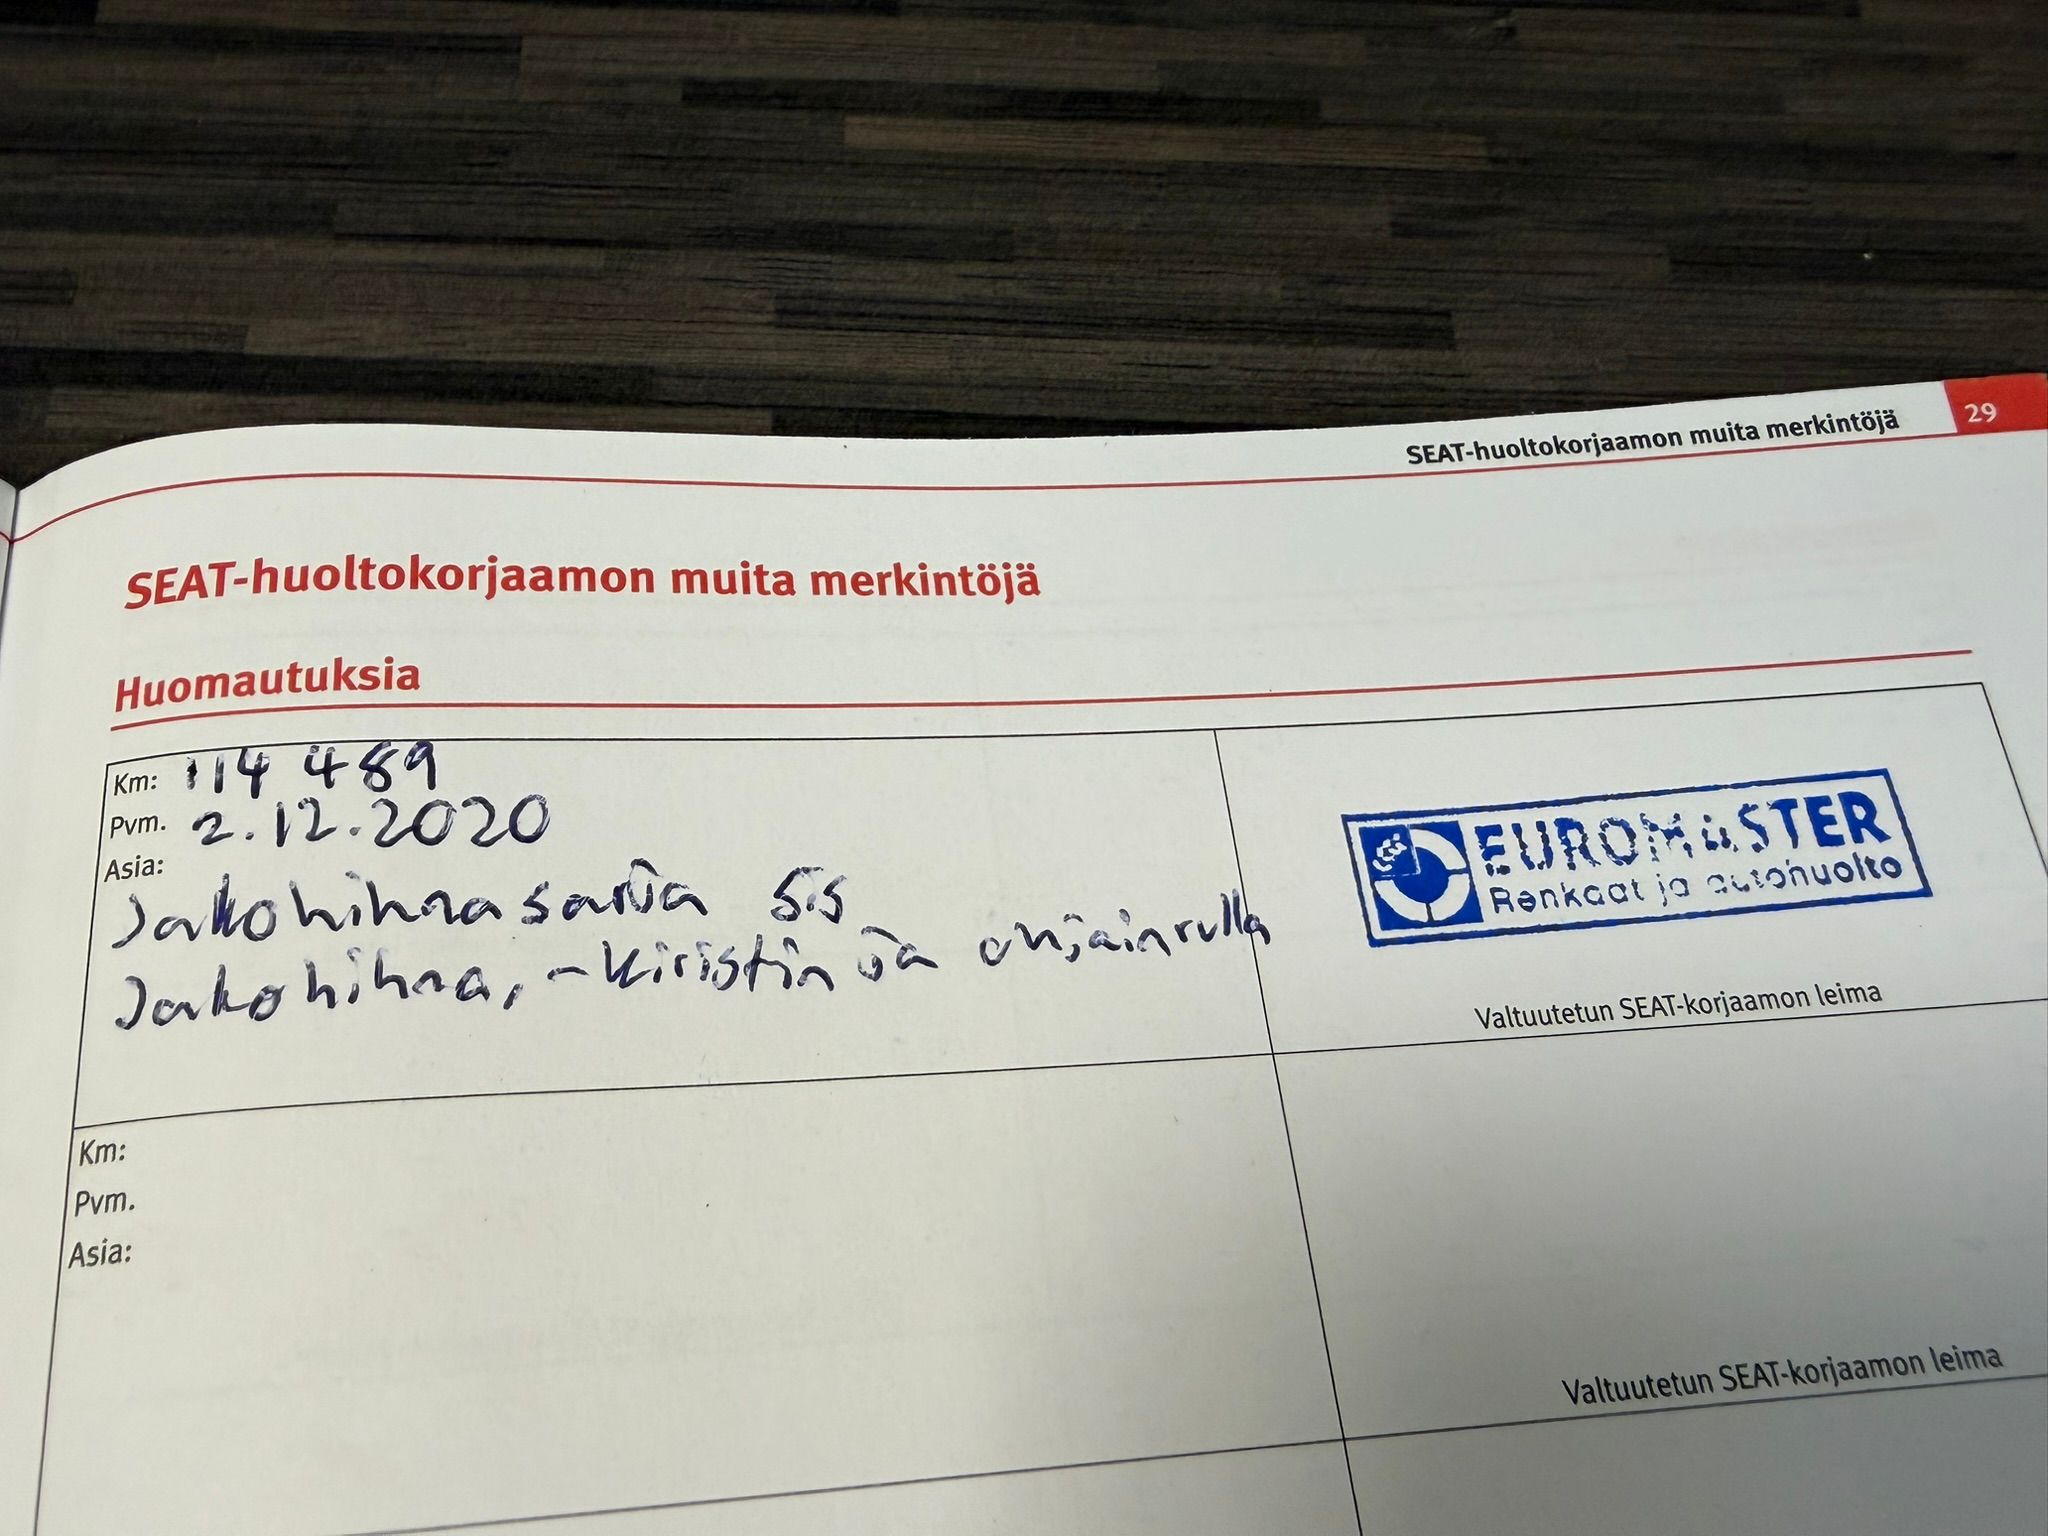 SEAT-huoltokorjaamon muita merkintöjä 29
SEAT-huoltokorjaamon muita merkintöjä
Huomautuksia
Km: 114 489
Pvm. 2.12.2020
Asia:
Jakohihnasarja sis
Jakohihna, -kiristin ja ohjainrulla
EUROMASTER
Renkaat ja autohuolto
Valtuutetun SEAT-korjaamon leima
Km:
Pvm.
Asia:
Valtuutetun SEAT-korjaamon leima